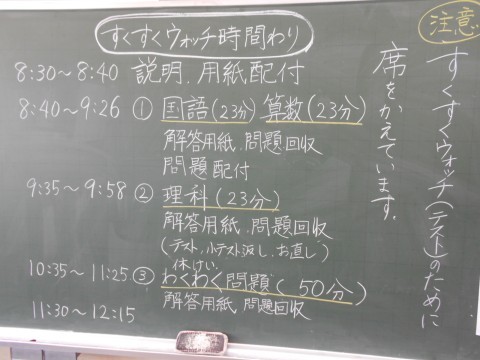 すくすくウォッチ時間わり
8:30～8:40 説明、用紙配付
8:40～9:26 ① 国語(23分) 算数(23分)
解答用紙、問題回収
問題配付
9:35～9:58 ② 理科(23分)
解答用紙、問題回収
(テスト、小テスト返し、お直し)
休けい
10:35～11:25 ③ わくわく問題(50分)
解答用紙、問題回収
11:30～12:15
注意
すくすくウォッチ(テスト)のために
席をかえています。